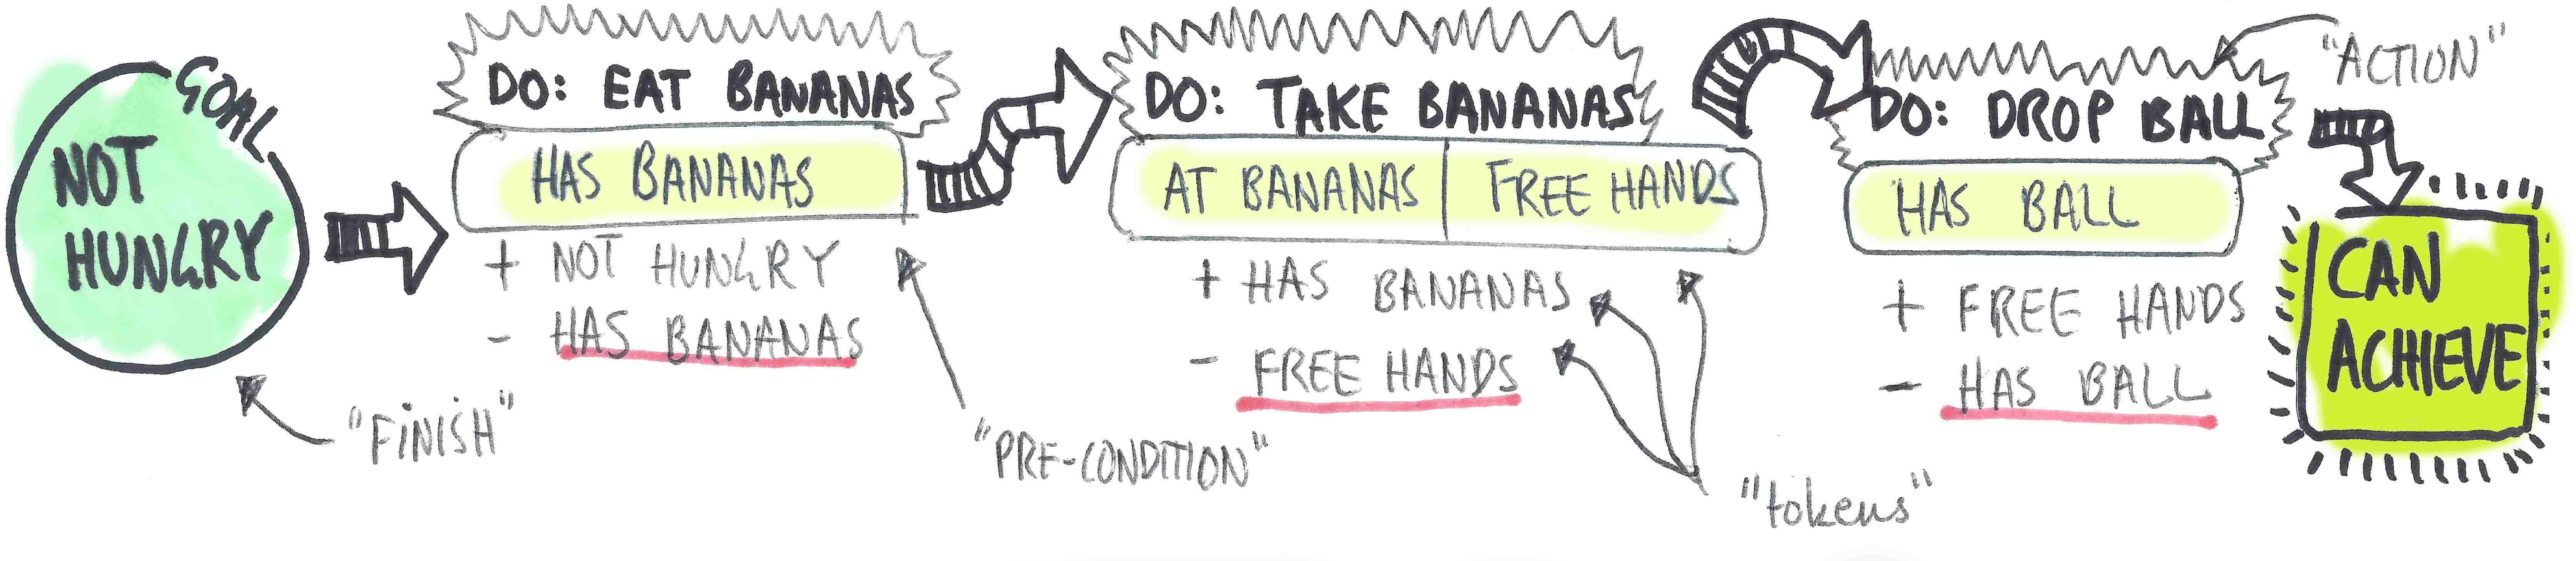 GOAL
NOT
HUNGRY
"FINISH"
DO: EAT BANANAS
HAS BANANAS
+ NOT HUNGRY
- HAS BANANAS
"PRE-CONDITION"
DO: TAKE BANANAS
AT BANANAS FREE HANDS
+ HAS BANANAS
- FREE HANDS
"tokens"
"ACTION"
DO: DROP BALL
HAS BALL
+ FREE HANDS
- HAS BALL
CAN
ACHIEVE